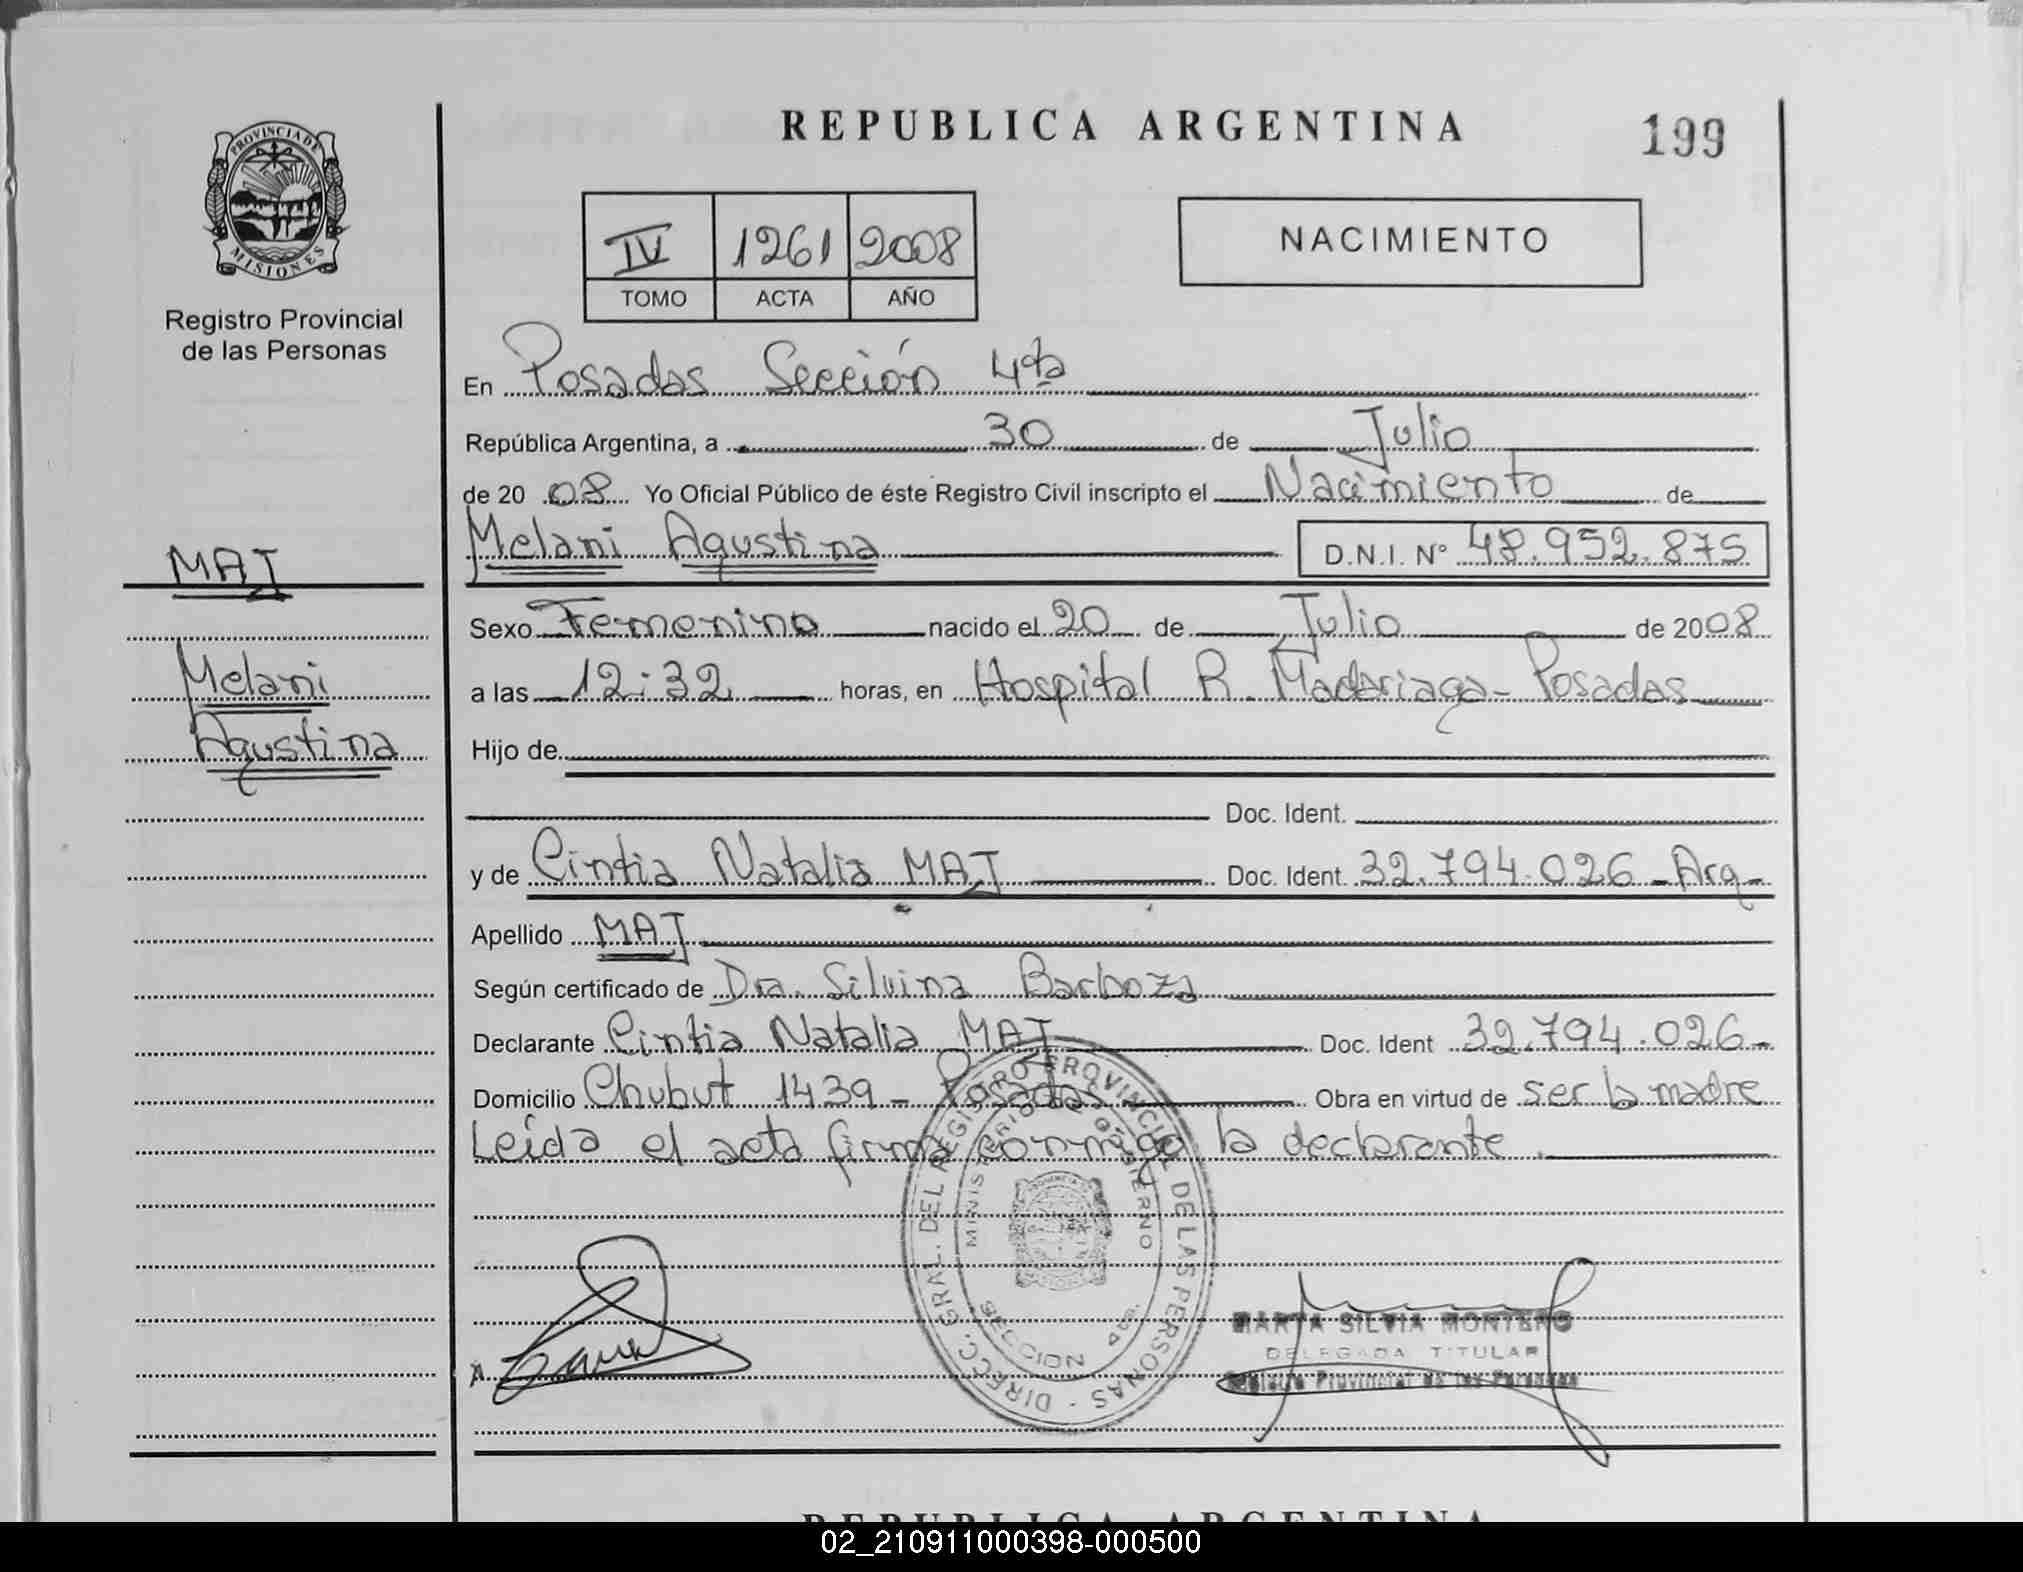 REPUBLICA ARGENTINA
199
PROVINCIA DE
MISIONES
Registro Provincial
de las Personas
IV 1261 2008
TOMO ACTA AÑO
NACIMIENTO
En Posadas Sección 4ta
República Argentina, a 30 de Julio
de 20 08 Yo Oficial Público de éste Registro Civil inscripto el Nacimiento de
Melani Agustina D.N.I. N° 48.952.875
MAJ
Melani
Agustina
Sexo Femenino nacido el 20 de Julio de 2008
a las 12:32 horas, en Hospital R. Madariaga - Posadas
Hijo de
Doc. Ident.
y de Cintia Natalia MAJ Doc. Ident. 32.794.026 - Arg -
Apellido MAJ
Según certificado de Dra. Silvina Barboza
Declarante Cintia Natalia MAJ Doc. Ident 32.794.026 -
Domicilio Chubut 1439 - Posadas Obra en virtud de ser la madre
Leída el acta firma conmigo la declarante.
DIRECC. GRAL. DEL REGISTRO PROVINCIAL DE LAS PERSONAS -
MINISTERIO DE GOBIERNO
SECCION 4ta.
MARTA SILVIA MONTERO
DELEGADA TITULAR
Registro Provincial de las Personas
REPUBLICA ARGENTINA
02_210911000398-000500